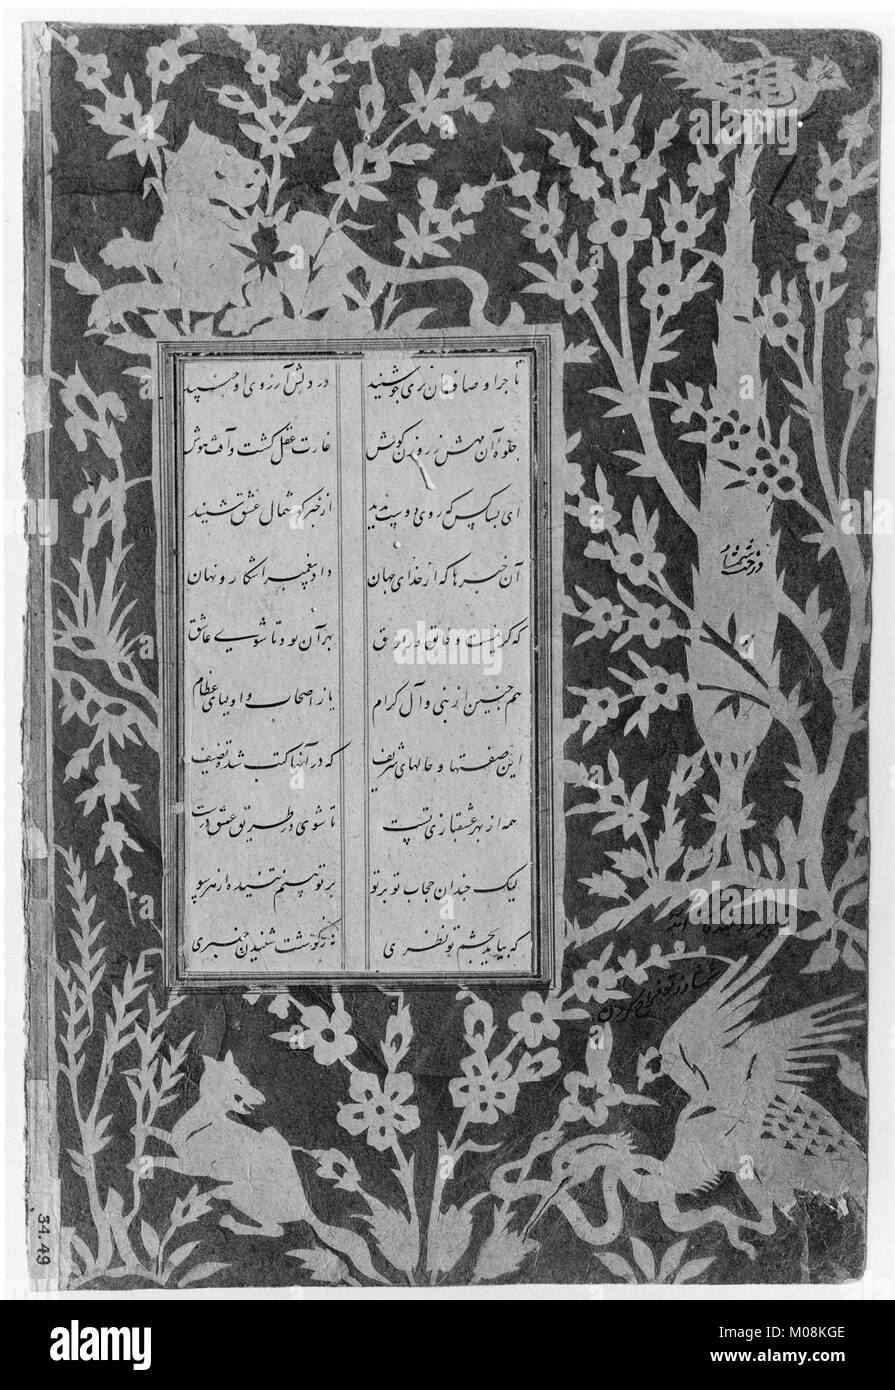 تا جرا و صافیان نری جوشنید در دلش آرزوی او جنبید
جلوهٔ آن مهش ز روزن گوش غارت عقل گشت و آفت هوش
ای بسا کس که روی دوست ندید از خبر گوشمال عشق شنید
آن خبرها که از خدای جهان داد پیغمبر آشکار و نهان
که کریمست و خالق و رازق بهر آن بود تا شوی عاشق
هم چنین از نبی و آل کرام باز اصحاب و اولیای عظام
این صفتها و حالهای شریف که در آنها کتب شده تصنیف
همه از بهر عشقبازی تست تا شوی در طریق عشق درست
لیک چندان حجاب تو بر تو بر تو بینم تنیده از هر سو
که بیاید بچشم تو نظری ز گوشت شنیدن خبری
درخت شمشاد
34.49
alamy
Image ID: M08KGE
www.alamy.com